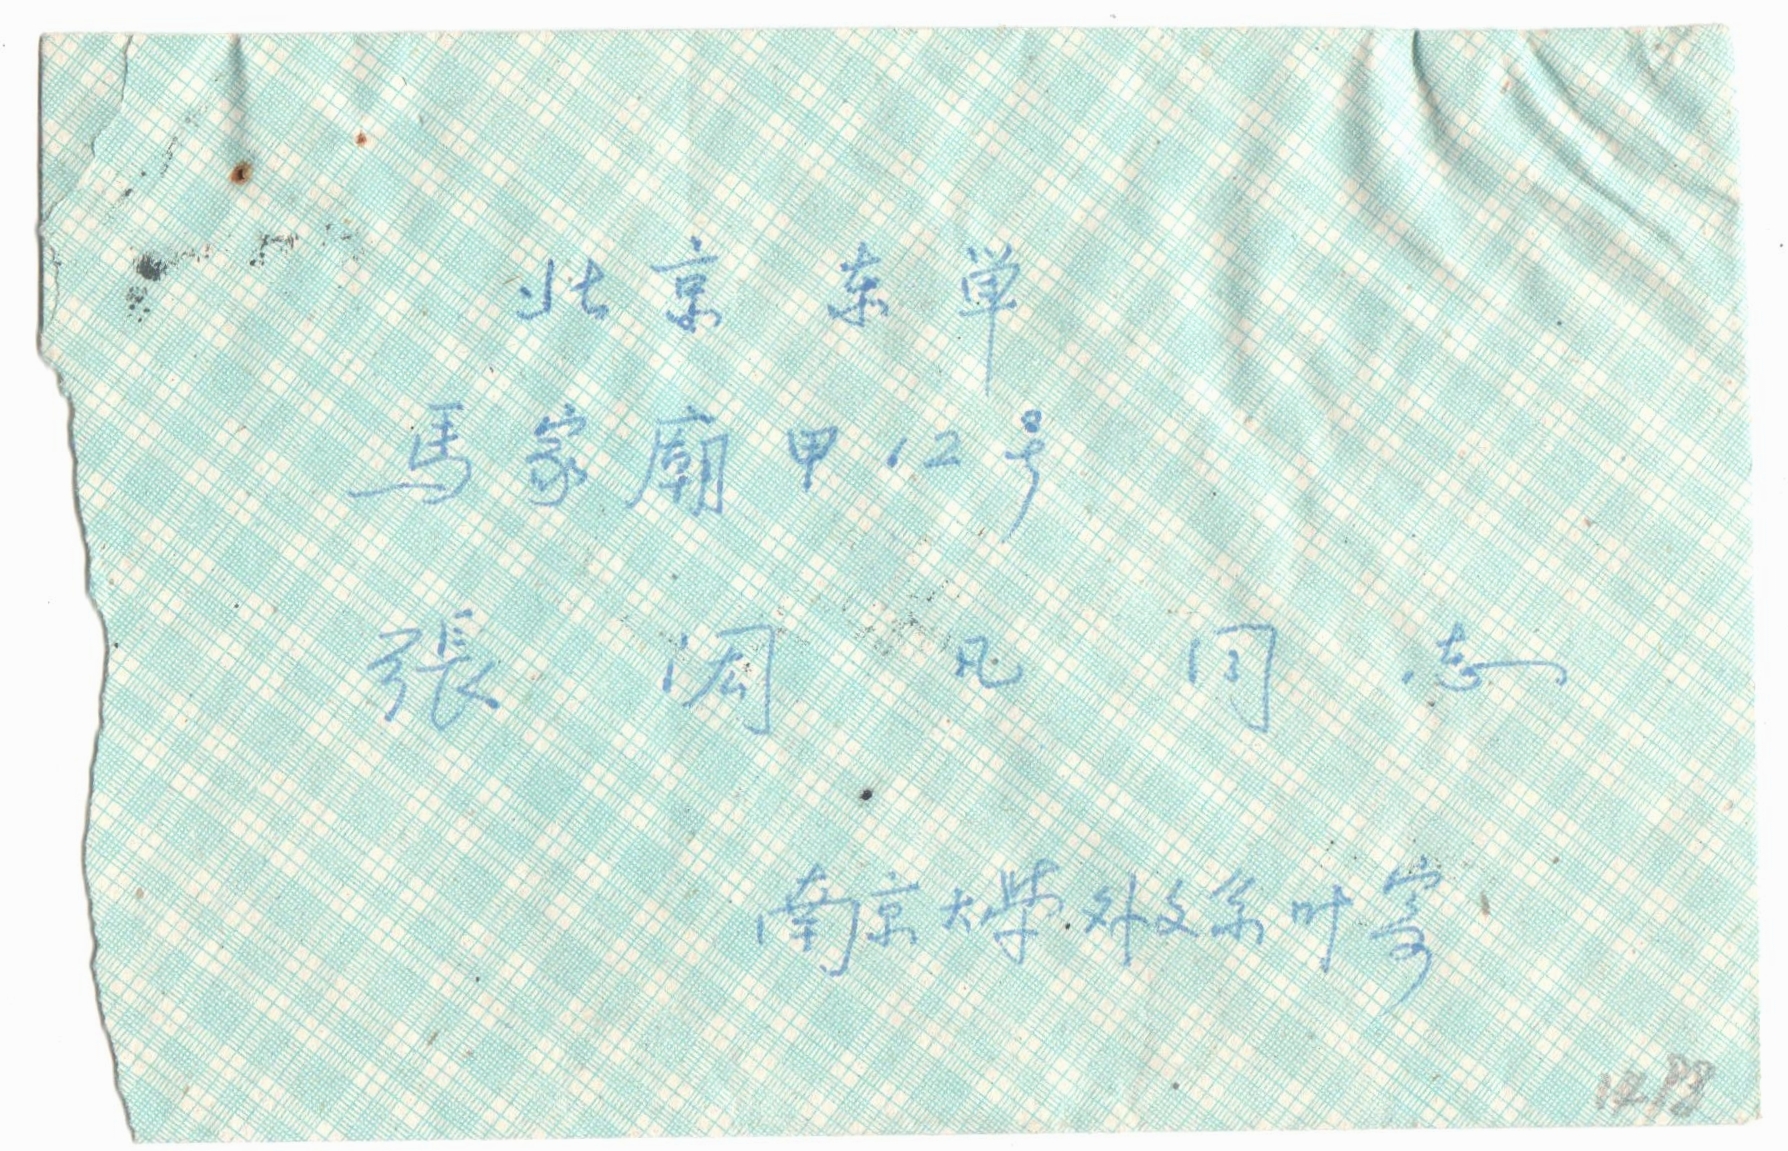 北京 东单
馬家廟甲12号
張 凡同志
南京大学外文系叶寄